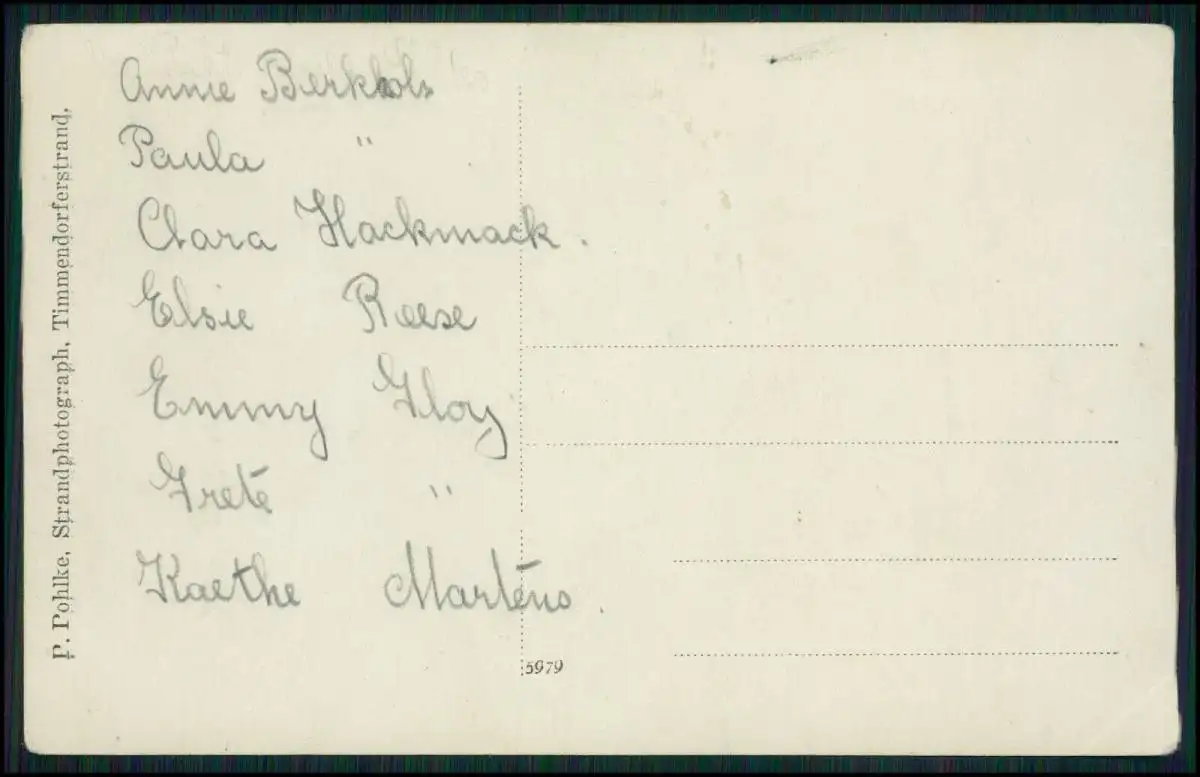 P. Pohlke, Strandphotograph, Timmendorferstrand,
Annie
Paula "
Clara Hackmack.
Elsie Reese
Emmy Gloy
Grete "
Kaethe Martens.
5979